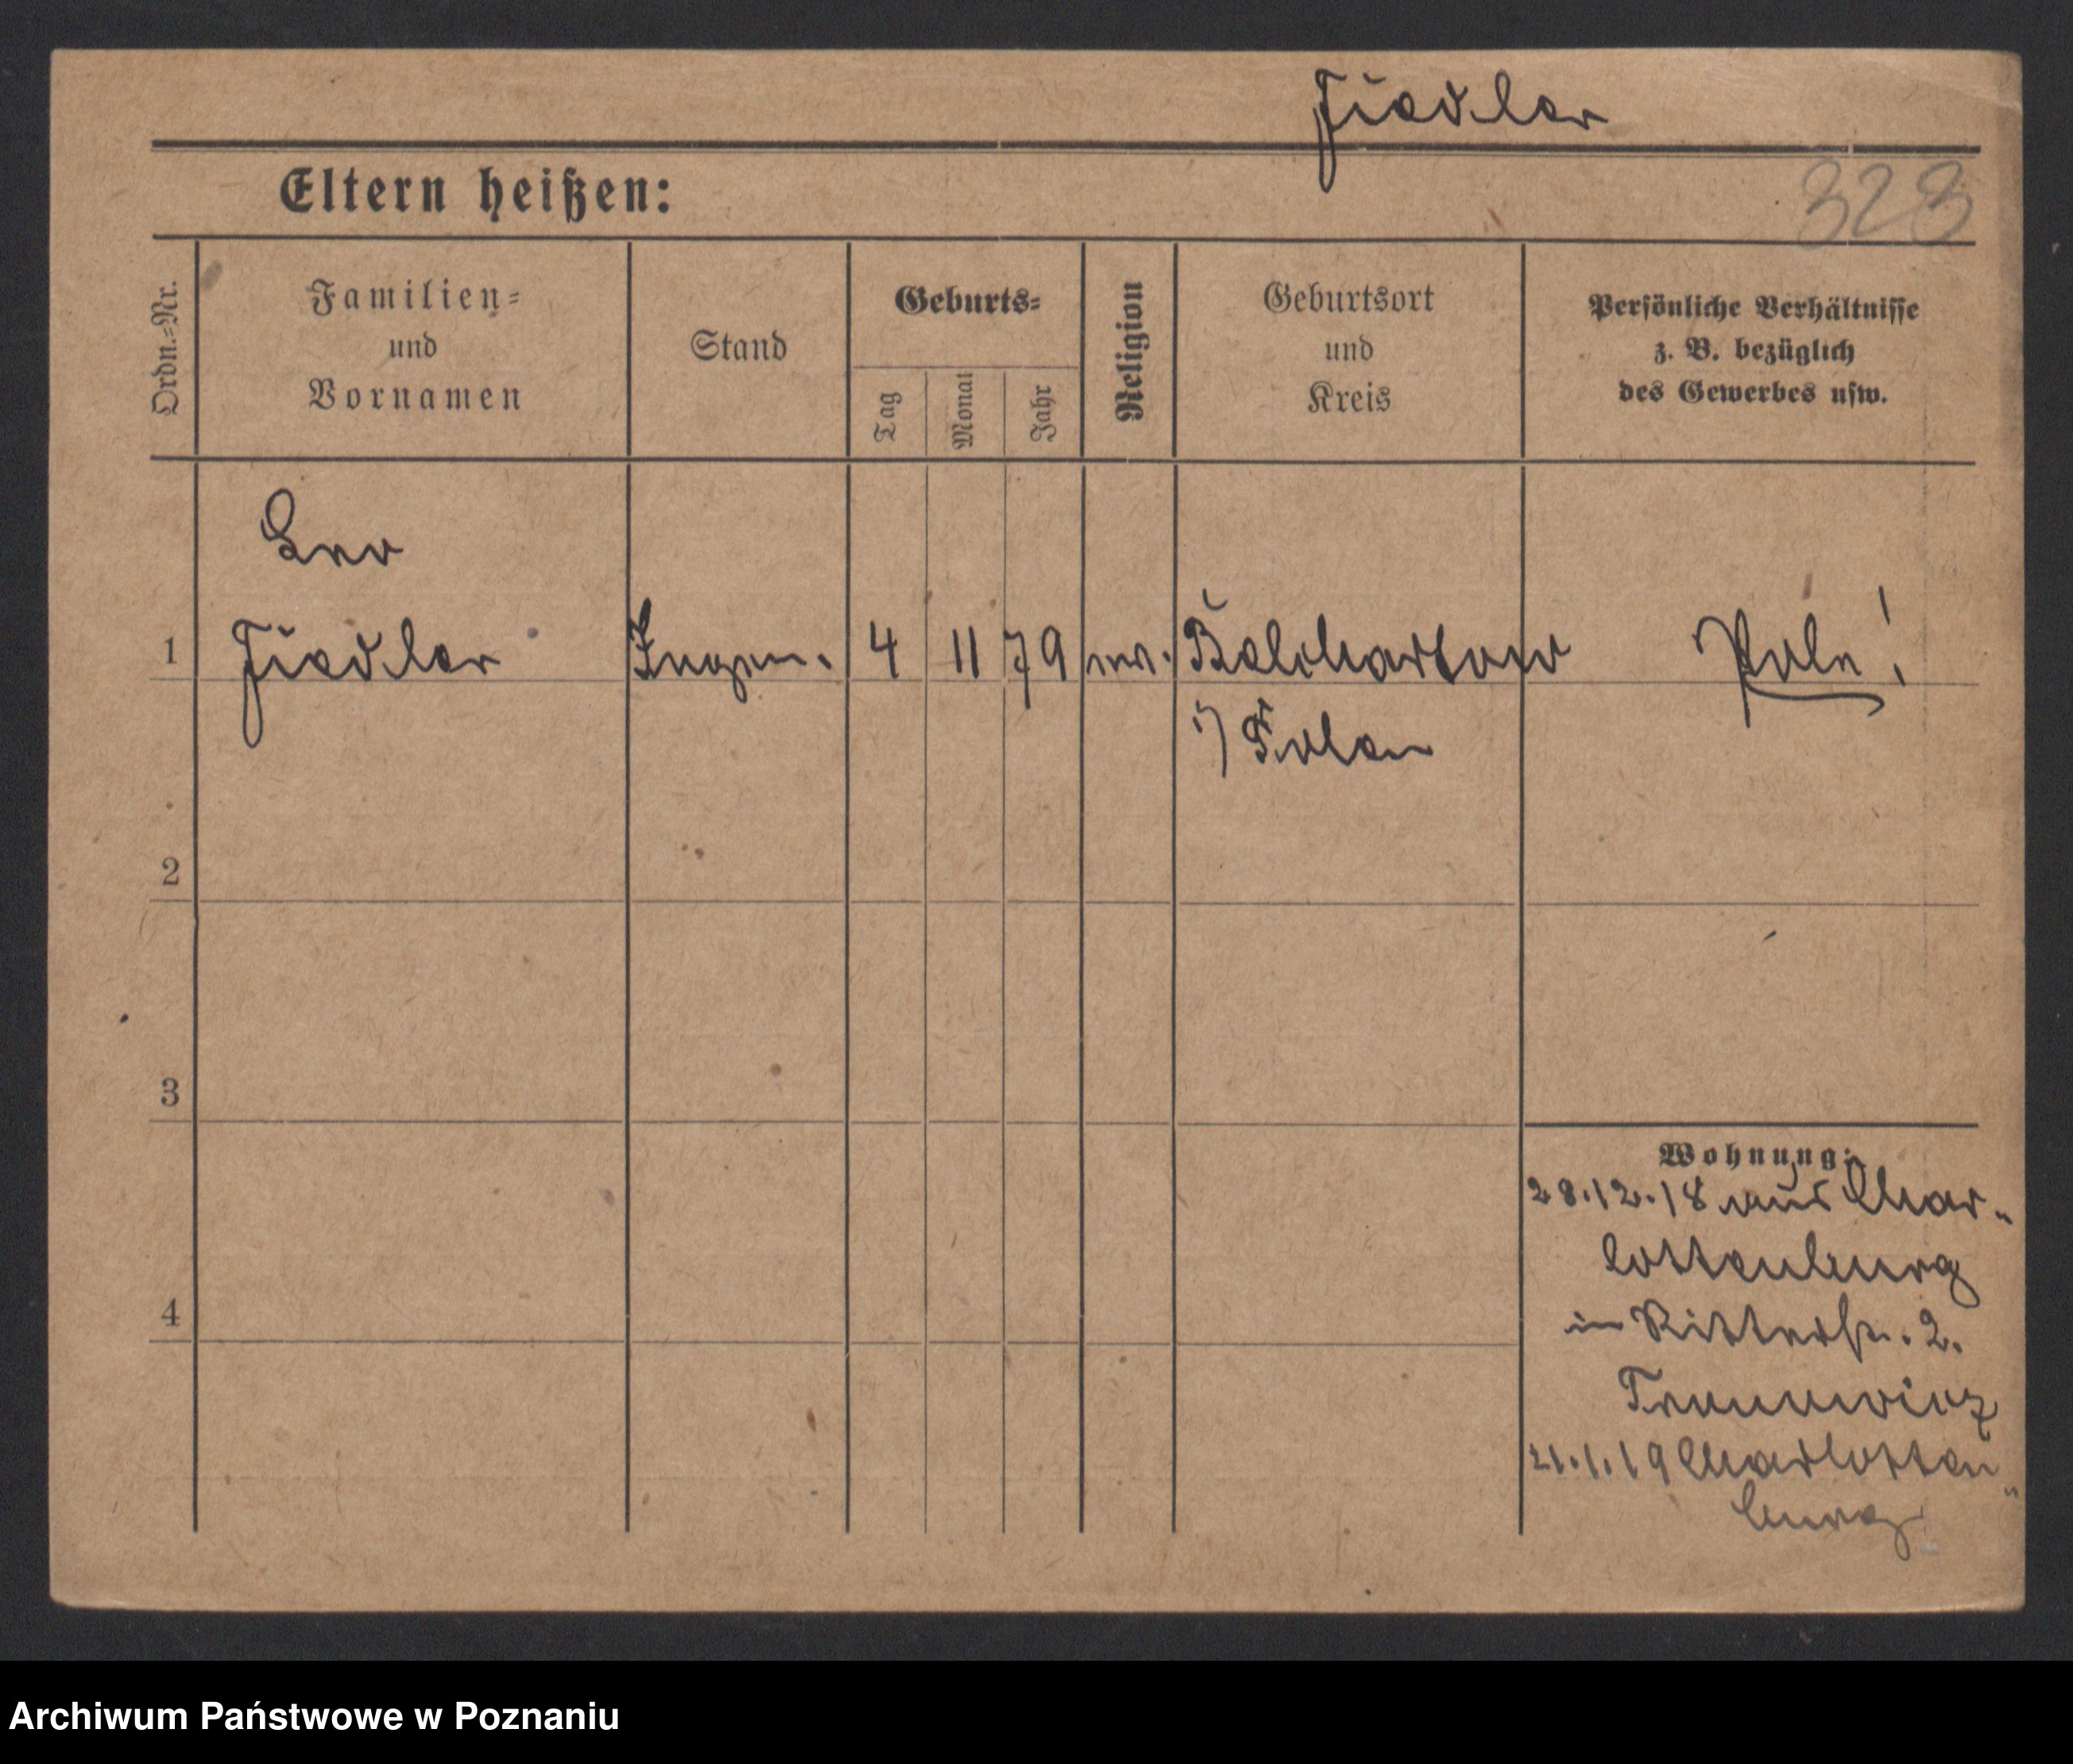 Fiedler
Eltern heißen:
323
Ordn.-Nr.
Familien-
und
Vornamen
Stand
Geburts-
Tag
Monat
Jahr
Religion
Geburtsort
und
Kreis
Persönliche Verhältnisse
z. B. bezüglich
des Gewerbes usw.
Leo
1 Fiedler Ingen. 4 11 79 Pole!
i/ Polen
2
3
Wohnung:
28.12.18 aus Char-
lottenburg
4 in Ritterstr. 2.
21.1.19 Charlotten-
burg
Archiwum Państwowe w Poznaniu